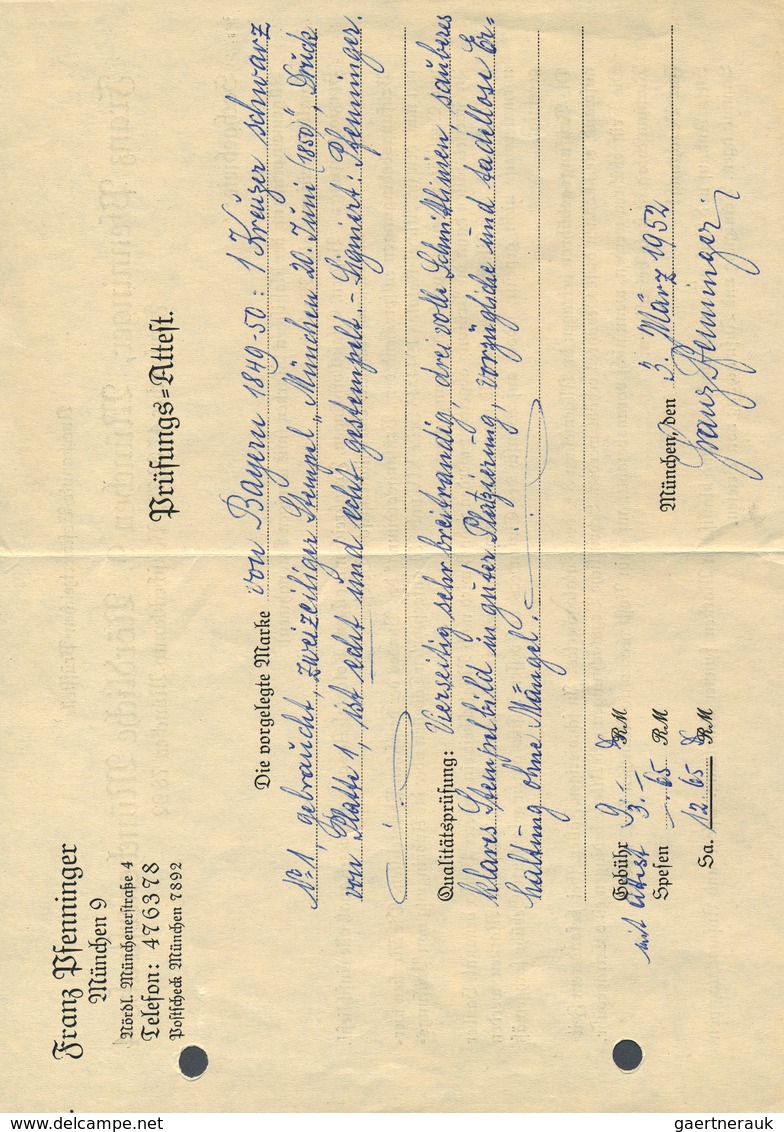 Franz Pfenninger
München 9
Nördl. Münchenerstraße 4
Telefon: 476378
Postscheck München 7892
Prüfungs=Attest.
Die vorgelegte Marke von Bayern 1849-50: 1 Kreuzer schwarz
No 1, gebraucht, zweizeiliger Stempel „München 20. Juni (1850)", Druck
von Platte 1, ist echt und echt gestempelt. - Signiert: Pfenninger.
Qualitätsprüfung: Vierseitig sehr breitrandig, drei volle Schnittlinien, sauberes
klares Stempelbild in guter Platzierung, vorzügliche und tadellose Er-
haltung ohne Mängel.
München, den 3. März 1952
Franz Pfenninger
Gebühr 9.- RM
mit Attest 3.-
Spesen -.65 RM
Sa. 12.65 RM
www.delcampe.net
gaertnerauk